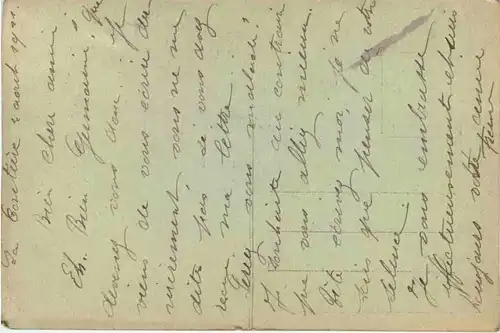 La 2 août 19
Bien chère amie
Eh. Bien Germaine. Que
devenez vous donc. Je
viens de vous écrire der
nièrement, vous ne me
dite pas si vous avez
reçu ma lettre.
Serez vous malade?
Je souhaite au contraire
que vous allez mieux
Vite écrivez moi, je ne
sais que penser de votre
silence.
Je vous embrasse
affectueusement et suis
toujours votre amie